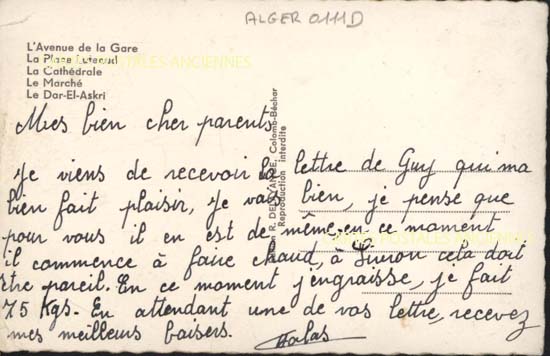 ALGER 0111D
L'Avenue de la Gare
La Place
La Cathédrale
Le Marché
Le Dar-El-Askri
POSTALES ANCIENNES
Mes bien cher parents
Je viens de recevoir la lettre de Guy qui ma
bien fait plaisir, Je vais bien, je pense que
pour vous il en est de même, en ce moment
il commence à faire chaud, à cela doit
être pareil. En ce moment j'engraisse, je fait
75 Kgs. En attendant une de vos lettre, recevez
mes meilleurs baisers.
R. Colomb-Béchar
Reproduction interdite
POSTALES ANCIENNES